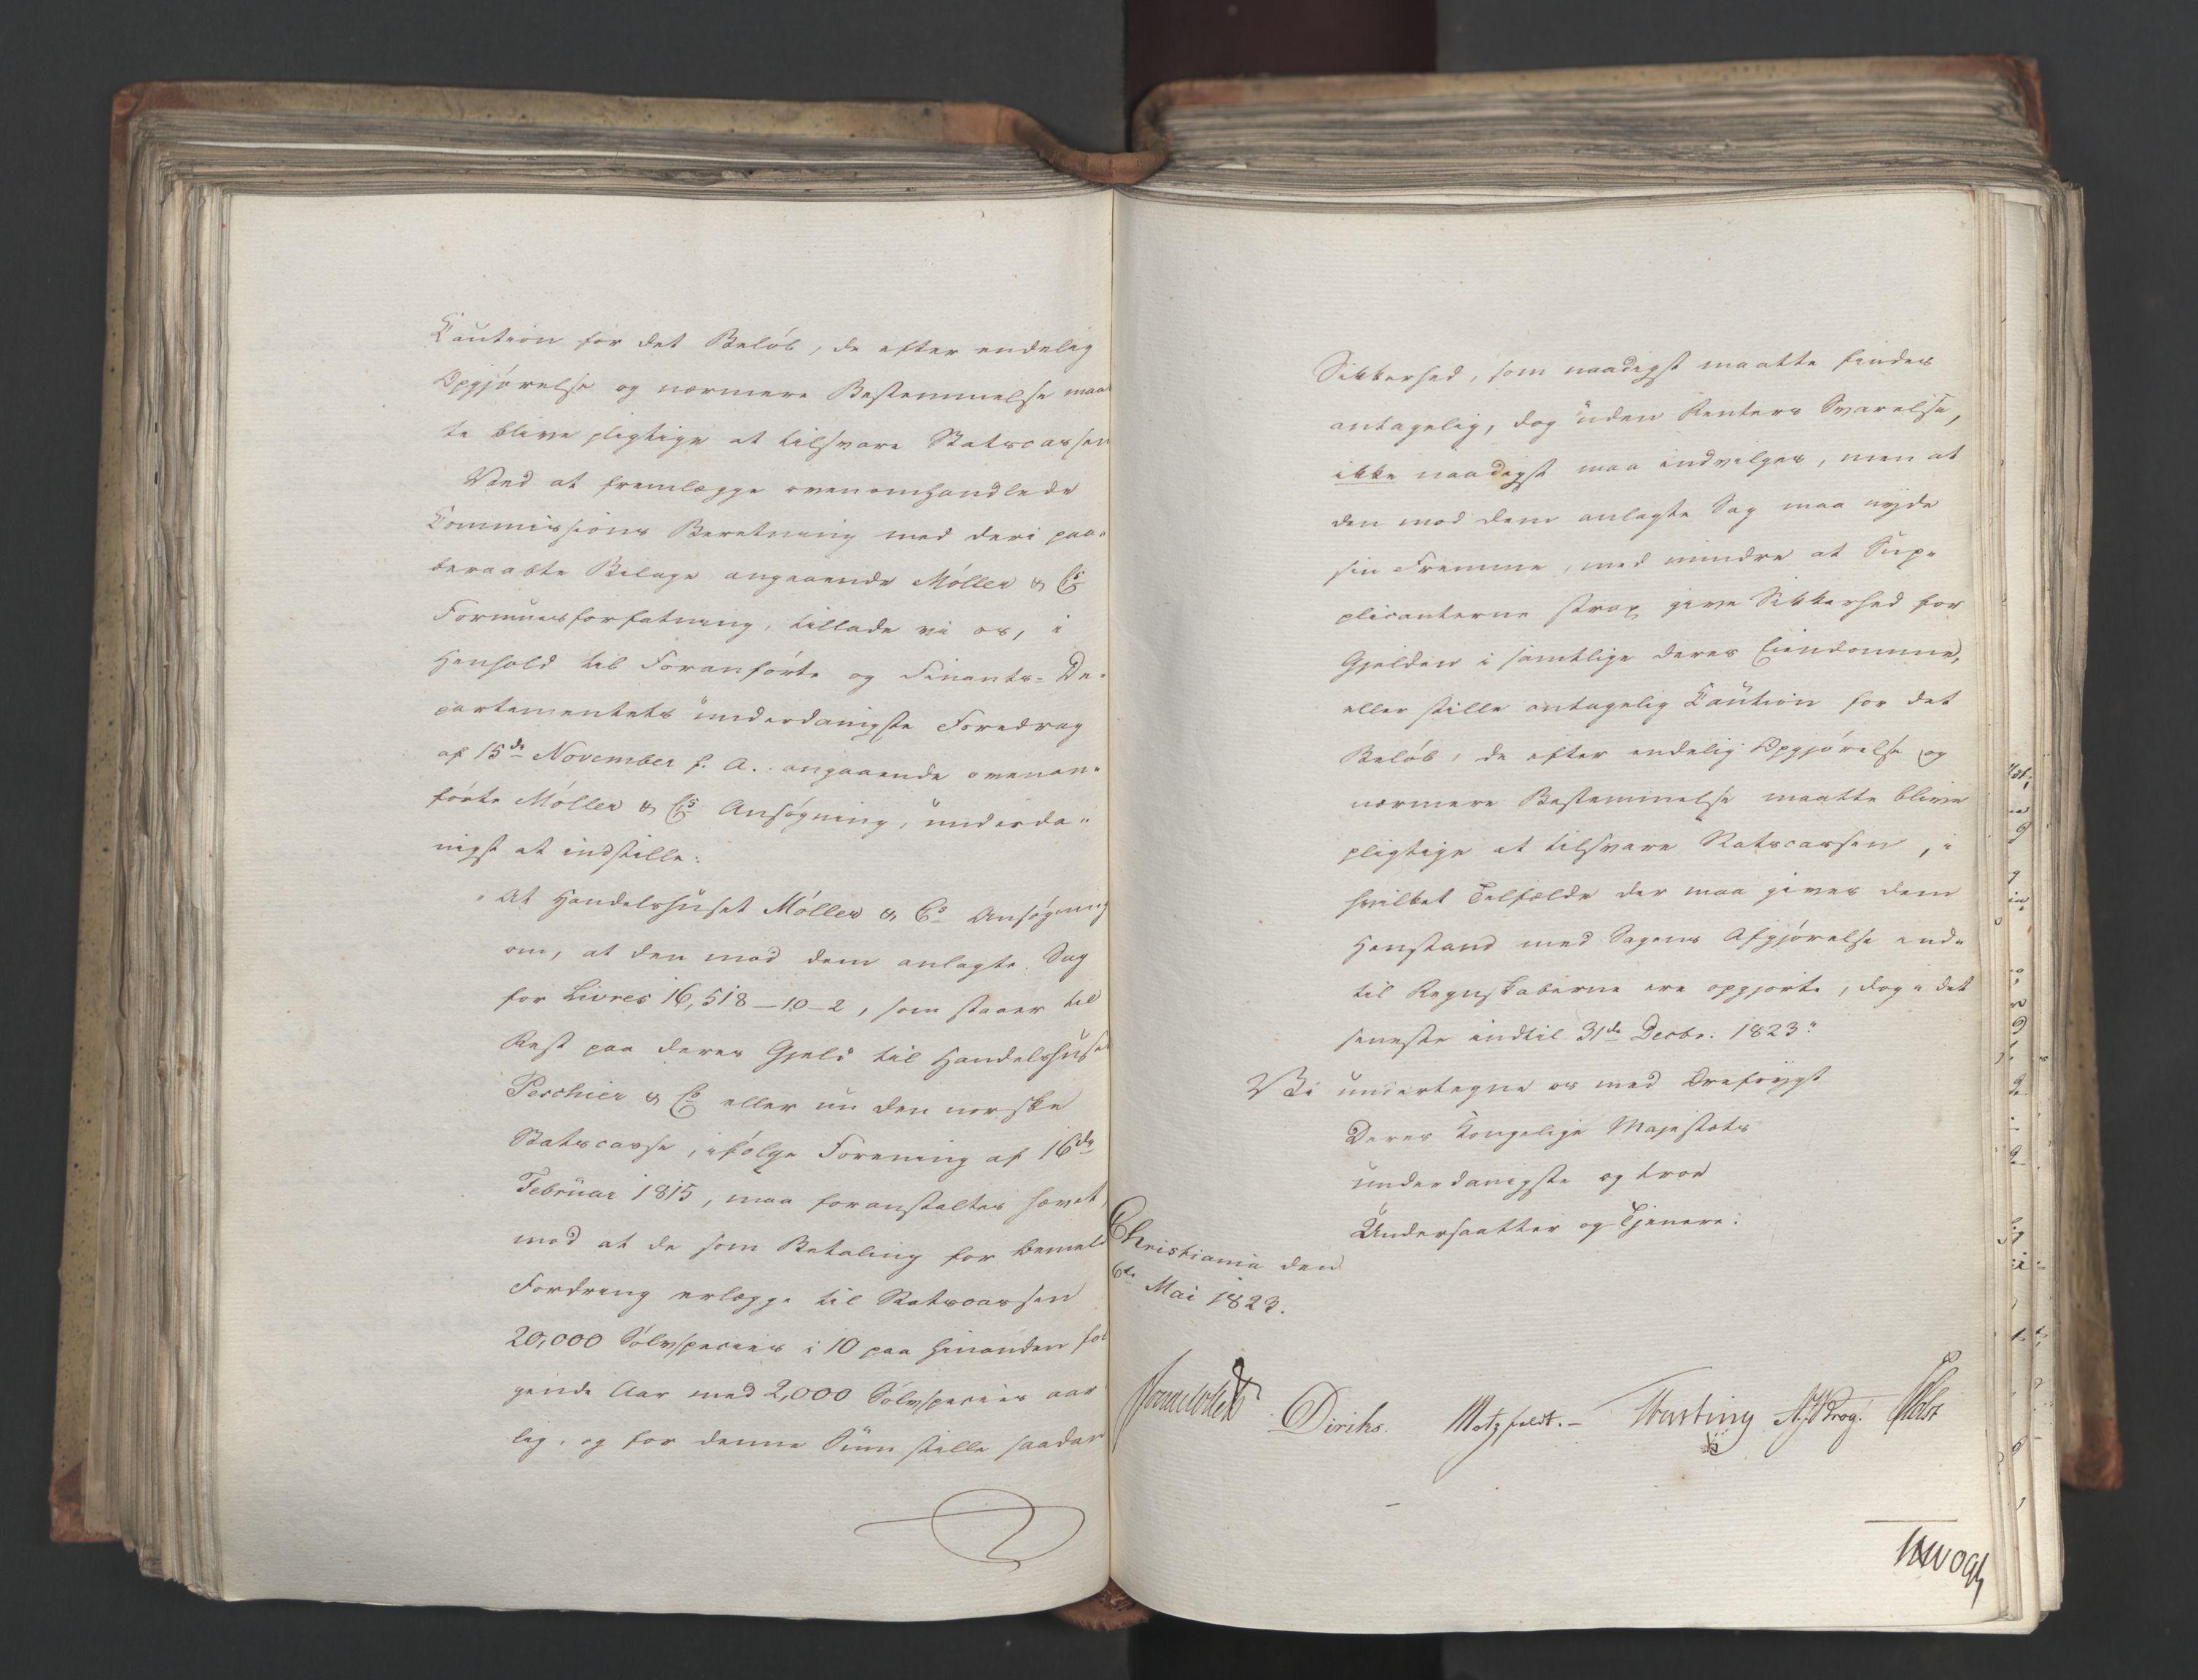 Caution for det Beløb, de efter endelig
Opgjørelse og nærmere Bestemmelse maat
te blive pligtige at tilsvare Statscassen
Ved at fremlægge ovenomhandlede
Commissions Beretning med deri paa-
beraabte Bilage angaaende Møller & Cs
Formuesforfatning, tillade vi os, i
Henhold til Foranførte og Finants-De-
partementets underdanigste Foredrag
af 15de November f. A. angaaende ovenan-
førte Møller & Cs Ansøgning, underda-
nigst at indstille:
"At Handelshuset Møller & Cs Ansøgning
om, at den mod dem anlagte Sag
for Livres 16,518-10-2, som staaer til
Rest paa deres Gjeld til Handelshuset
Peschier & Co eller nu den norske
Statscasse, ifølge Forening af 16de
Februar 1815, maa foranstaltes hævet,
mod at de som Betaling for bemeldte
Fordring erlægge til Statscassen
20,000 Sølvspecies i 10 paa hinanden føl
gende Aar med 2,000 Sølvspecies aar
lig, og for denne Sum stille saadan
Sikkerhed, som naadigst maatte findes
antagelig, dog uden Renters Svarelse,
ikke naadigst maa indvilges, men at
den mod dem anlagte Sag maa nyde
sin Fremme, med mindre at Sup-
plicanterne strax give Sikkerhed for
Gjelden i samtlige deres Eiendomme,
eller stille antagelig Caution for det
Beløb, de efter endelig Opgjørelse og
nærmere Bestemmelse maatte blive
pligtige at tilsvare Statscassen, i
hvilket Tilfælde der maa gives dem
Henstand med Sagens Afgjørelse ind-
til Regnskaberne ere opgjorte, dog i det
seneste indtil 31de Decbr. 1823"
Vi undertegne os med Ærefrygt
Deres Kongelige Majestæts
underdanigste og troe
Undersaatter og Tjenere:
Christiania den
6te Mai 1823.
Diriks. Motzfeldt.- Treschow Krog. Holst